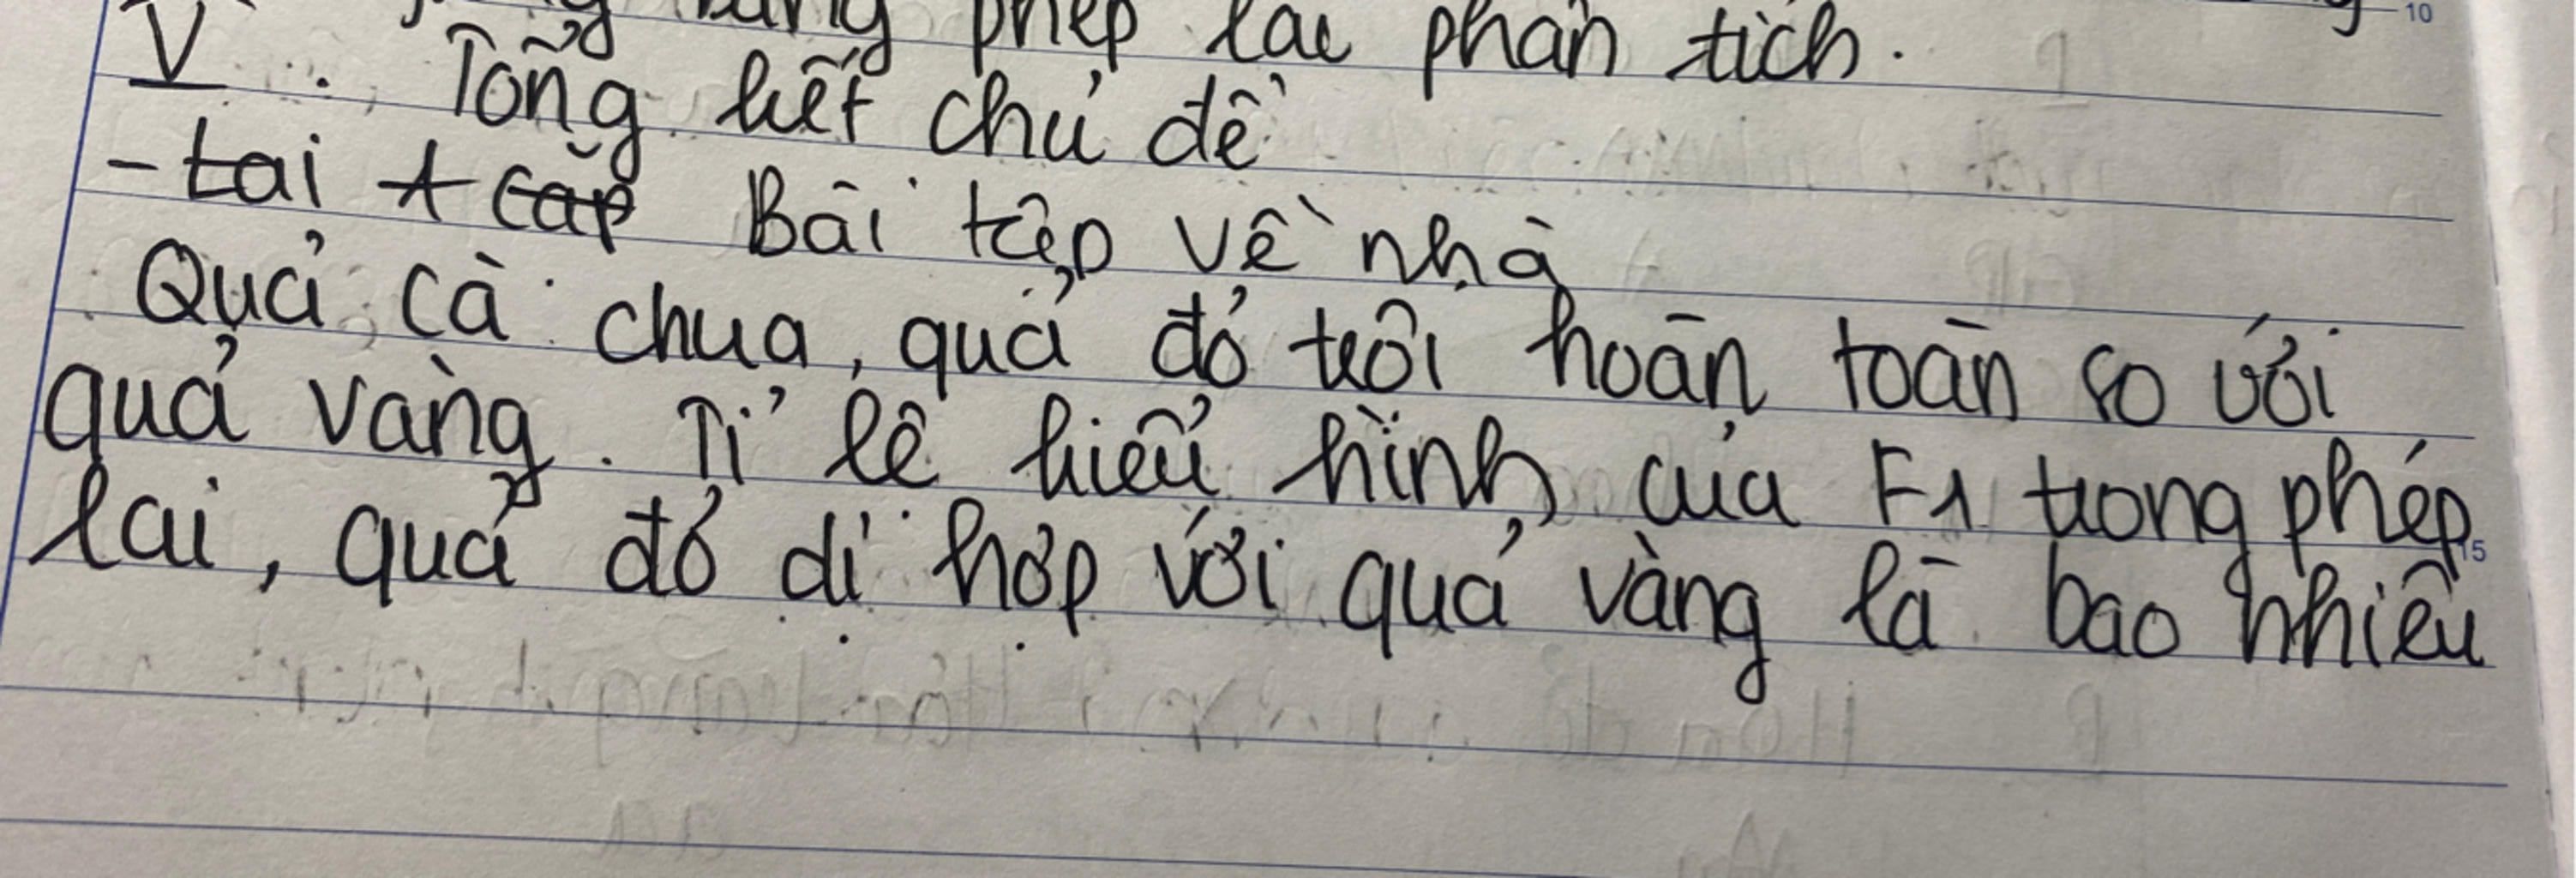 bằng phép lai phân tích.
V. Tổng kết chủ đề
- tai + cặp Bài tập về nhà
Quả cà chua, quả đỏ trội hoàn toàn so với
quả vàng. Tỉ lệ kiểu hình của F1 trong phép
lai, quả đỏ dị hợp với quả vàng là bao nhiêu